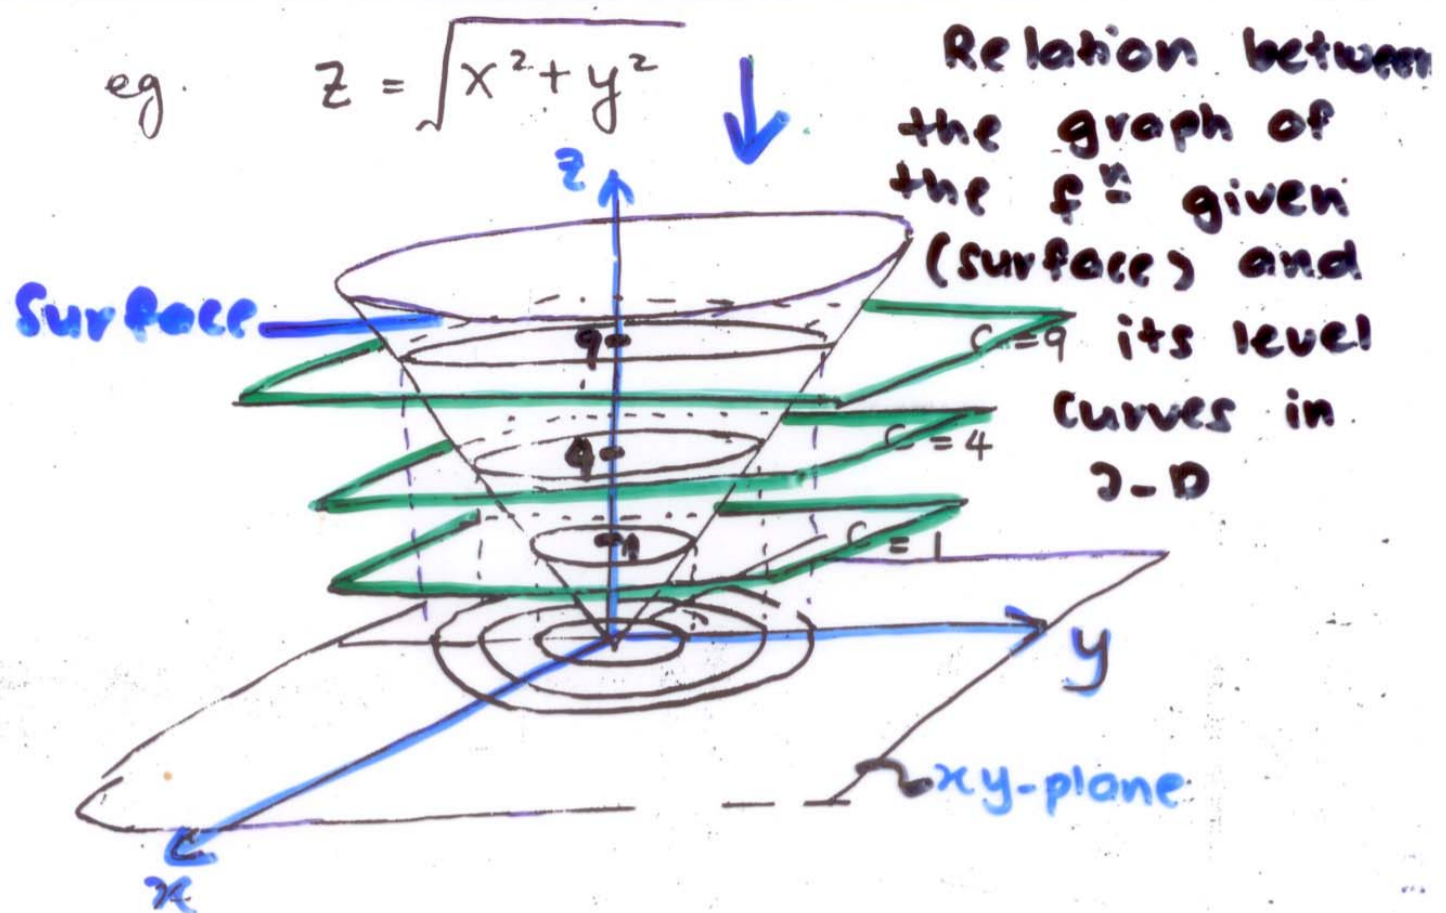 eg. z = √(x² + y²)
Relation between
the graph of
the fⁿ given
(surface) and
its level
curves in
2-D
z
Surface
9
C = 9
4
C = 4
1
C = 1
y
xy-plane
x